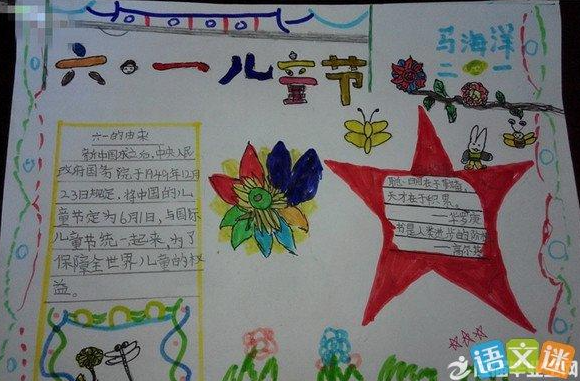 六·一儿童节
马海洋
二〇一
六一的由来
新中国成立后,中央人民
政府国务院于1949年12月
23日规定,将中国的儿
童节定为6月1日,与国际
儿童节统一起来,为了
保障全世界儿童的权
益。
聪明在于学习,
天才在于积累。
书是人类进步的阶梯
——高尔基
语文迷